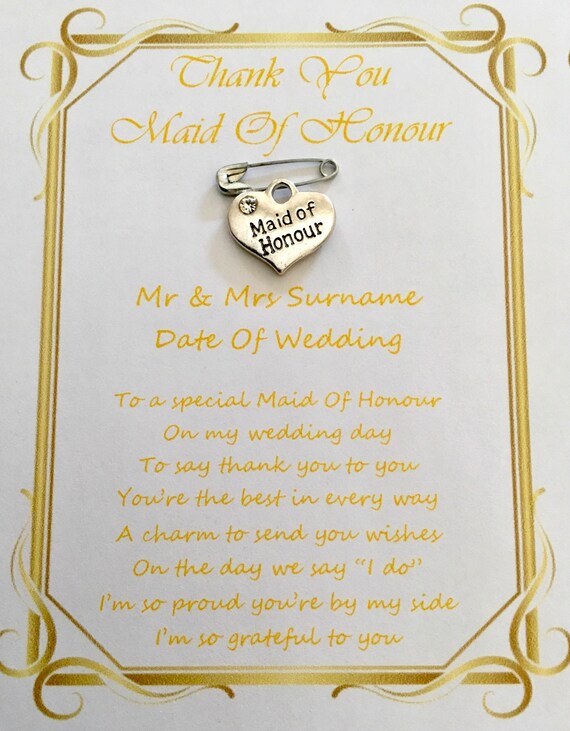 Thank You
Maid Of Honour
Maid of
Honour
Mr & Mrs Surname
Date Of Wedding
To a special Maid Of Honour
On my wedding day
To say thank you to you
You're the best in every way
A charm to send you wishes
On the day we say “I do”
I'm so proud you're by my side
I'm so grateful to you